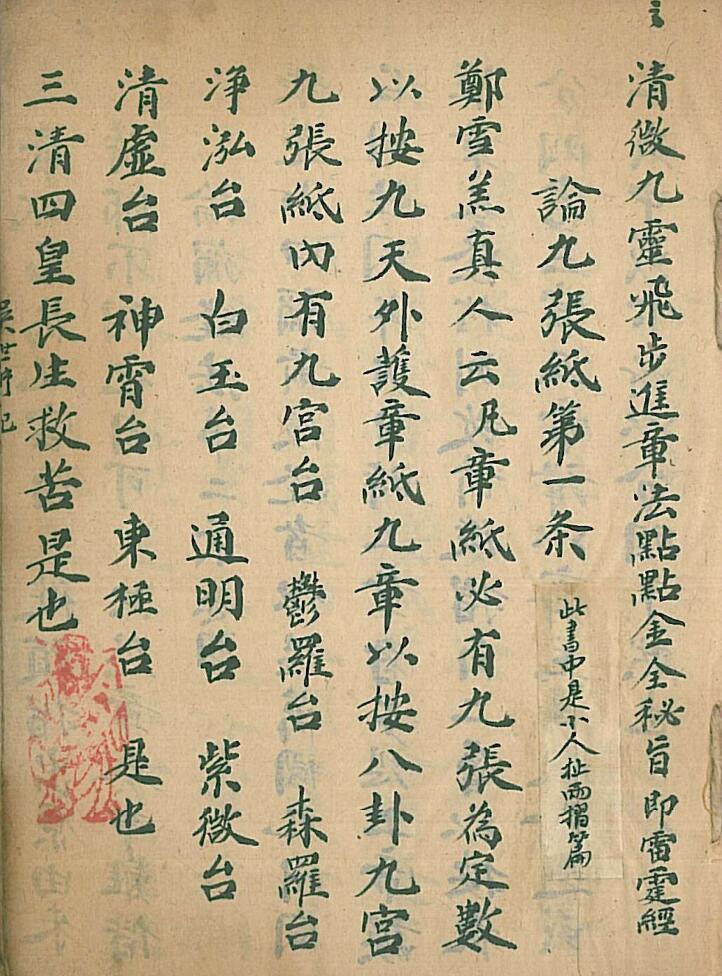 清微九靈飛步進章法點點金全秘旨即雷霆經
論九張紙第一条
此書中是小人扯兩摺篇
鄭雪羔真人云凡章紙必有九張為定數
以按九天外護章紙九章以按八卦九宮
九張紙內有九宮台 鬱羅台 森羅台
净泓台 白玉台 通明台 紫微台
清虛台 神霄台 東極台 是也
三清四皇長生救苦是也